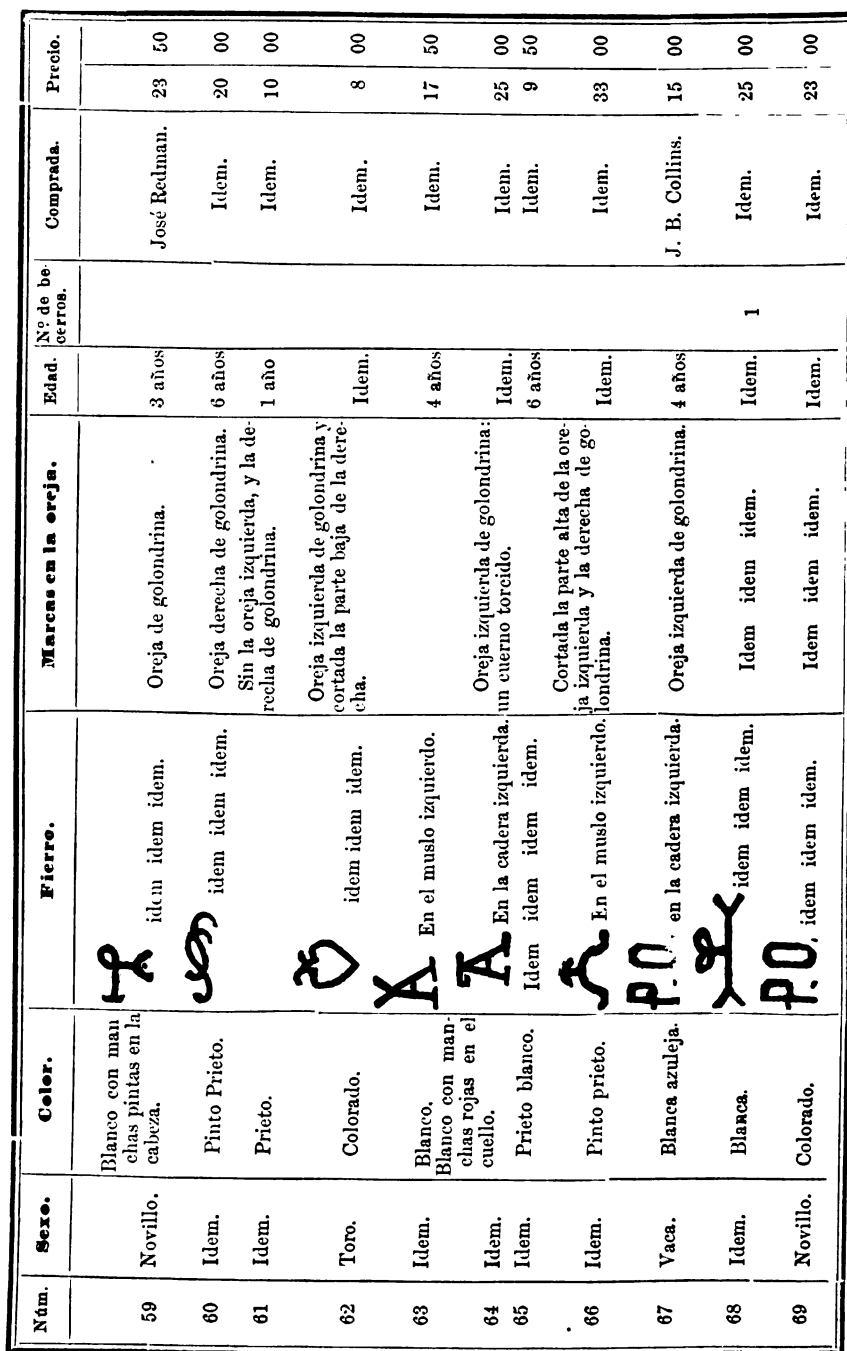 Núm. Sexo. Color. Fierro. Marcas en la oreja. Edad. Nº de be- cerros. Comprada. Precio.
59 Novillo. Blanco con man
chas pintas en la
cabeza. idem idem idem. Oreja de golondrina. 3 años José Redman. 23 50
60 Idem. Pinto Prieto. idem idem idem. Oreja derecha de golondrina. 6 años Idem. 20 00
61 Idem. Prieto. Sin la oreja izquierda, y la de-
recha de golondrina. 1 año Idem. 10 00
62 Toro. Colorado. idem idem idem. Oreja izquierda de golondrina y
cortada la parte baja de la dere-
cha. Idem. Idem. 8 00
63 Idem. Blanco. A En el muslo izquierdo. 4 años Idem. 17 50
64 Idem. Blanco con man-
chas rojas en el
cuello. A En la cadera izquierda. Oreja izquierda de golondrina:
un cuerno torcido. Idem. Idem. 25 00
65 Idem. Prieto blanco. Idem idem idem idem. 6 años Idem. 9 50
66 Idem. Pinto prieto. En el muslo izquierdo. Cortada la parte alta de la ore-
ja izquierda y la derecha de go-
londrina. Idem. Idem. 33 00
67 Vaca. Blanca azuleja. P.O. en la cadera izquierda. Oreja izquierda de golondrina. 4 años J. B. Collins. 15 00
68 Idem. Blanca. idem idem idem. Idem idem idem. Idem. 1 Idem. 25 00
69 Novillo. Colorado. P.O. idem idem idem. Idem idem idem. Idem. Idem. 23 00